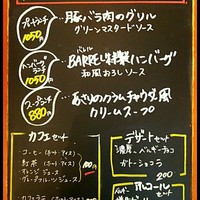 プレートランチ
1050円
豚バラ肉のグリル
グリーンマスタードソース
ハンバーグランチ
1050円
バレル
BARREL特製ハンバーグ
和風おろしソース
スープランチ
880円
あさりのクラムチャウダー風
クリームスープ
カフェセット
コーヒー (ホット・アイス)
紅茶 (ホット・アイス)
オレンジジュース
グレープフルーツジュース
100円
デザートセット
ガトーショコラ
200
アルコールセット